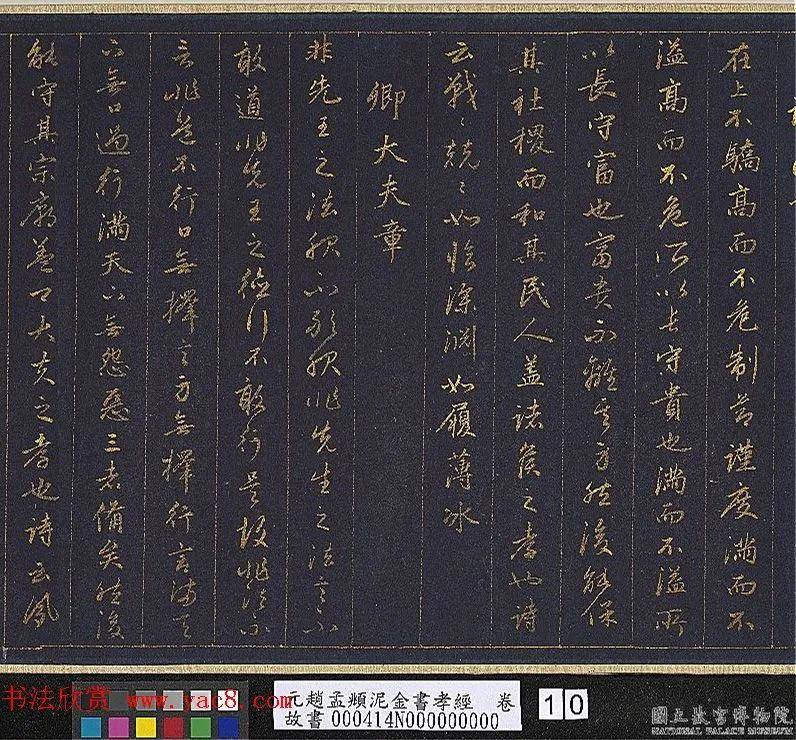 在上不驕高而不危制節謹度滿而不
溢高而不危所以長守貴也滿而不溢所
以長守富也富貴不離其身然後能保
其社稷而和其民人蓋諸侯之孝也詩
云戰〻兢〻如臨深淵如履薄冰
卿大夫章
非先王之法服不敢服非先王之法言不
敢道非先王之德行不敢行是故非法不
言非道不行口無擇言身無擇行言滿天
下無口過行滿天下無怨惡三者備矣然後
能守其宗廟蓋卿大夫之孝也詩云夙
书法欣赏 www.yac8.com
元趙孟頫泥金書孝經 卷
故書000414N000000000
10
國立故宮博物院
NATIONAL PALACE MUSEUM